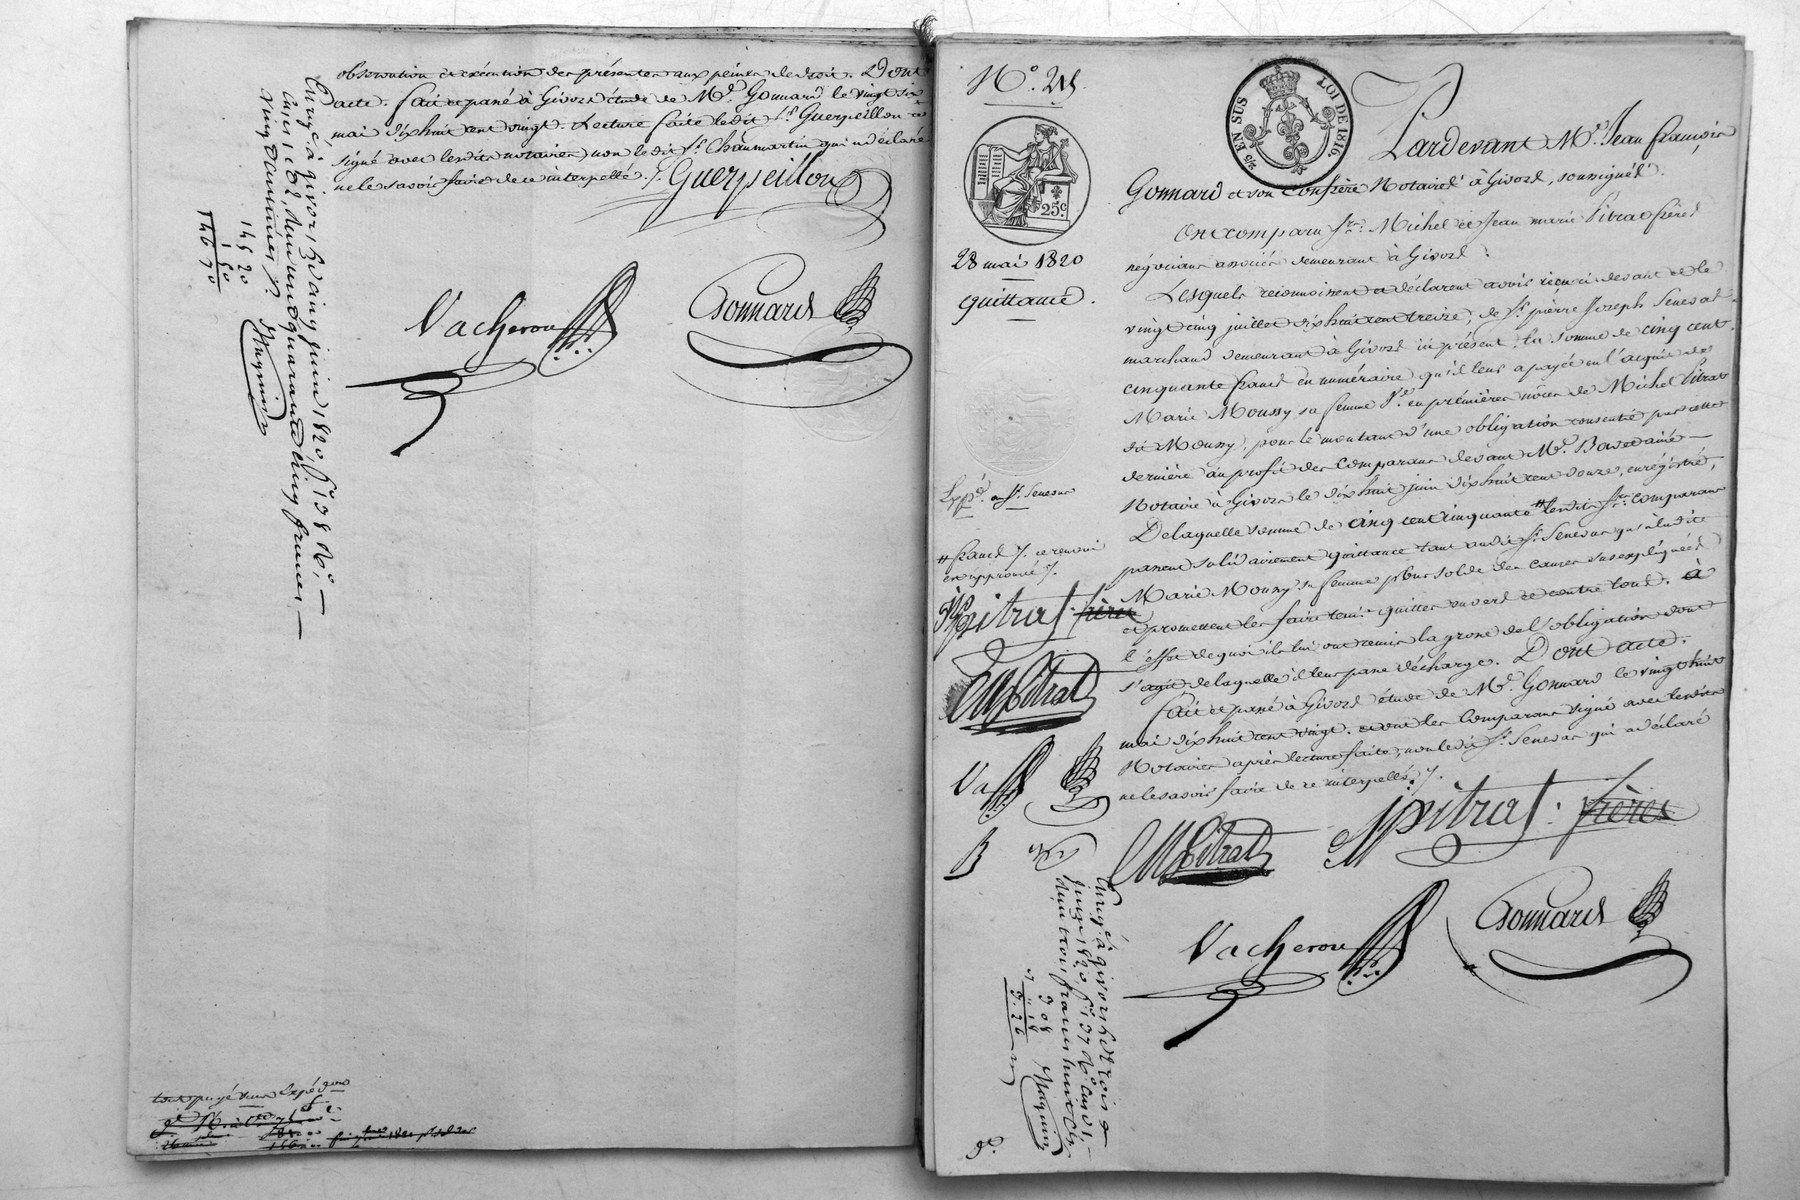 observation et exécution des présentes aux peines de droit. Dont
acte. fait et passé à Givors étude de Me. Gonnard le vingt six
mai dix huit cent vingt. Lecture faite ledit Sr. Guerpeillon a
signé avec lesdits notaires non le dit Sr. Chaumartin qui a déclaré
ne le savoir faire de ce interpellé ./.
Guerpeillon
Vacheron
Gonnard
Enrgé à givors le cinq juin 1820, fo 138 Ro.
Cases 1 et 2, reçu cent quarante cinq francs
vingt centimes
145 20
1 50
146 70
Magnin
No. 215
EN SUS
LOI DE 1816.
25c
28 mai 1820
quittance.
Pardevant Me. Jean françois
Gonnard et son Confrère Notaires à Givors, soussignés.
Ont comparu Srs. Michel et Jean marie Pitrat frères
négocians associés demeurant à Givors :
Lesquels reconnoissent et déclarent avoir reçu ci-devant et le
vingt cinq juillet dix huit cent treize, de Sr. pierre Joseph Senevas
marchand demeurant à Givors ici présent, la somme de cinq cent
cinquante francs en numéraire qu'il leur a payée en l'acquit de
Marie Moussy sa femme Ve. en premières nôces de Michel Pitrat
dit Moussy, pour le montant d'une obligation consentie par cette
dernière au profit des Comparans devant Me. Bonedainé
Notaire à Givors le dix huit juin dix huit cent douze, enregistré,
Delaquelle somme de cinq cent cinquante # lesdits Srs. comparans
passent solidairement quittance tant audit Sr. Senevas qu'à ladite
Marie Moussy sa femme pour solde des causes susexpliquées
et promettent les faire tenir quittes envers et contre tous. à
l'effet de quoi ils lui ont remis la grosse de l'obligation dont
s'agit de laquelle il leur passe décharge. Dont acte.
fait et passé à Givors étude de Me. Gonnard le vingt huit
mai dix huit cent vingt. et ont les Comparans signé avec lesdits
Notaires après lecture faite, non le dit Sr. Senevas qui a déclaré
ne le savoir faire de ce interpellé ./.
Expé. au Sr. Senevas
# francs ./. ce renvoi
est approuvé ./.
M pitrat. frères
JM Pitrat
Va
JM Pitrat
M pitrat. frères
Vacheron
Gonnard
Enrgé à givors le trois
juin 1820 fo 137 Vo. case 1
reçu trois francs huit cs
3 08
" 18
3. 26
Magnin